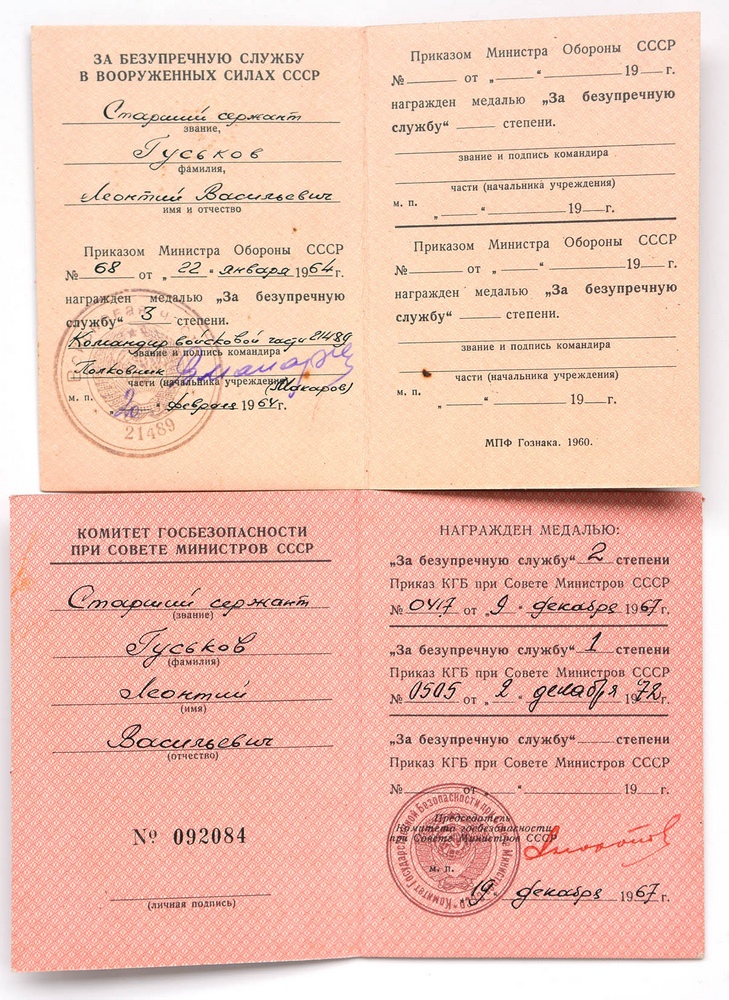 ЗА БЕЗУПРЕЧНУЮ СЛУЖБУ
В ВООРУЖЕННЫХ СИЛАХ СССР
Старший сержант
звание,
Гуськов
фамилия,
Леонтий Васильевич
имя и отчество
Приказом Министра Обороны СССР
№ 68 от „22“ января 1964г.
награжден медалью „За безупречную
службу“ 3 степени.
Командир войсковой части 21489
звание и подпись командира
Полковник
части (начальника учреждения)
(Макаров)
м. п. „20“ февраля 1964г.
21489
Приказом Министра Обороны СССР
№ от „ “ 19 г.
награжден медалью „За безупречную
службу“ степени.
звание и подпись командира
части (начальника учреждения)
м. п.
„ “ 19 г.
Приказом Министра Обороны СССР
№ от „ “ 19 г.
награжден медалью „За безупречную
службу“ степени.
звание и подпись командира
части (начальника учреждения)
м. п.
„ “ 19 г.
МПФ Гознака. 1960.
КОМИТЕТ ГОСБЕЗОПАСНОСТИ
ПРИ СОВЕТЕ МИНИСТРОВ СССР
Старший сержант
(звание)
Гуськов
(фамилия)
Леонтий
(имя)
Васильевич
(отчество)
№ 092084
(личная подпись)
НАГРАЖДЕН МЕДАЛЬЮ:
„За безупречную службу“ 2 степени
Приказ КГБ при Совете Министров СССР
№ 0417 от „9“ декабря 1967г.
„За безупречную службу“ 1 степени
Приказ КГБ при Совете Министров СССР
№ 0505 от „2“ декабря 1972г.
„За безупречную службу“ степени
Приказ КГБ при Совете Министров СССР
№ от „ “ 19 г.
Председатель
Комитета госбезопасности
при Совете Министров СССР
м. п.
„19“ декабря 1967г.
Комитет Государственной Безопасности при Совете Министров СССР